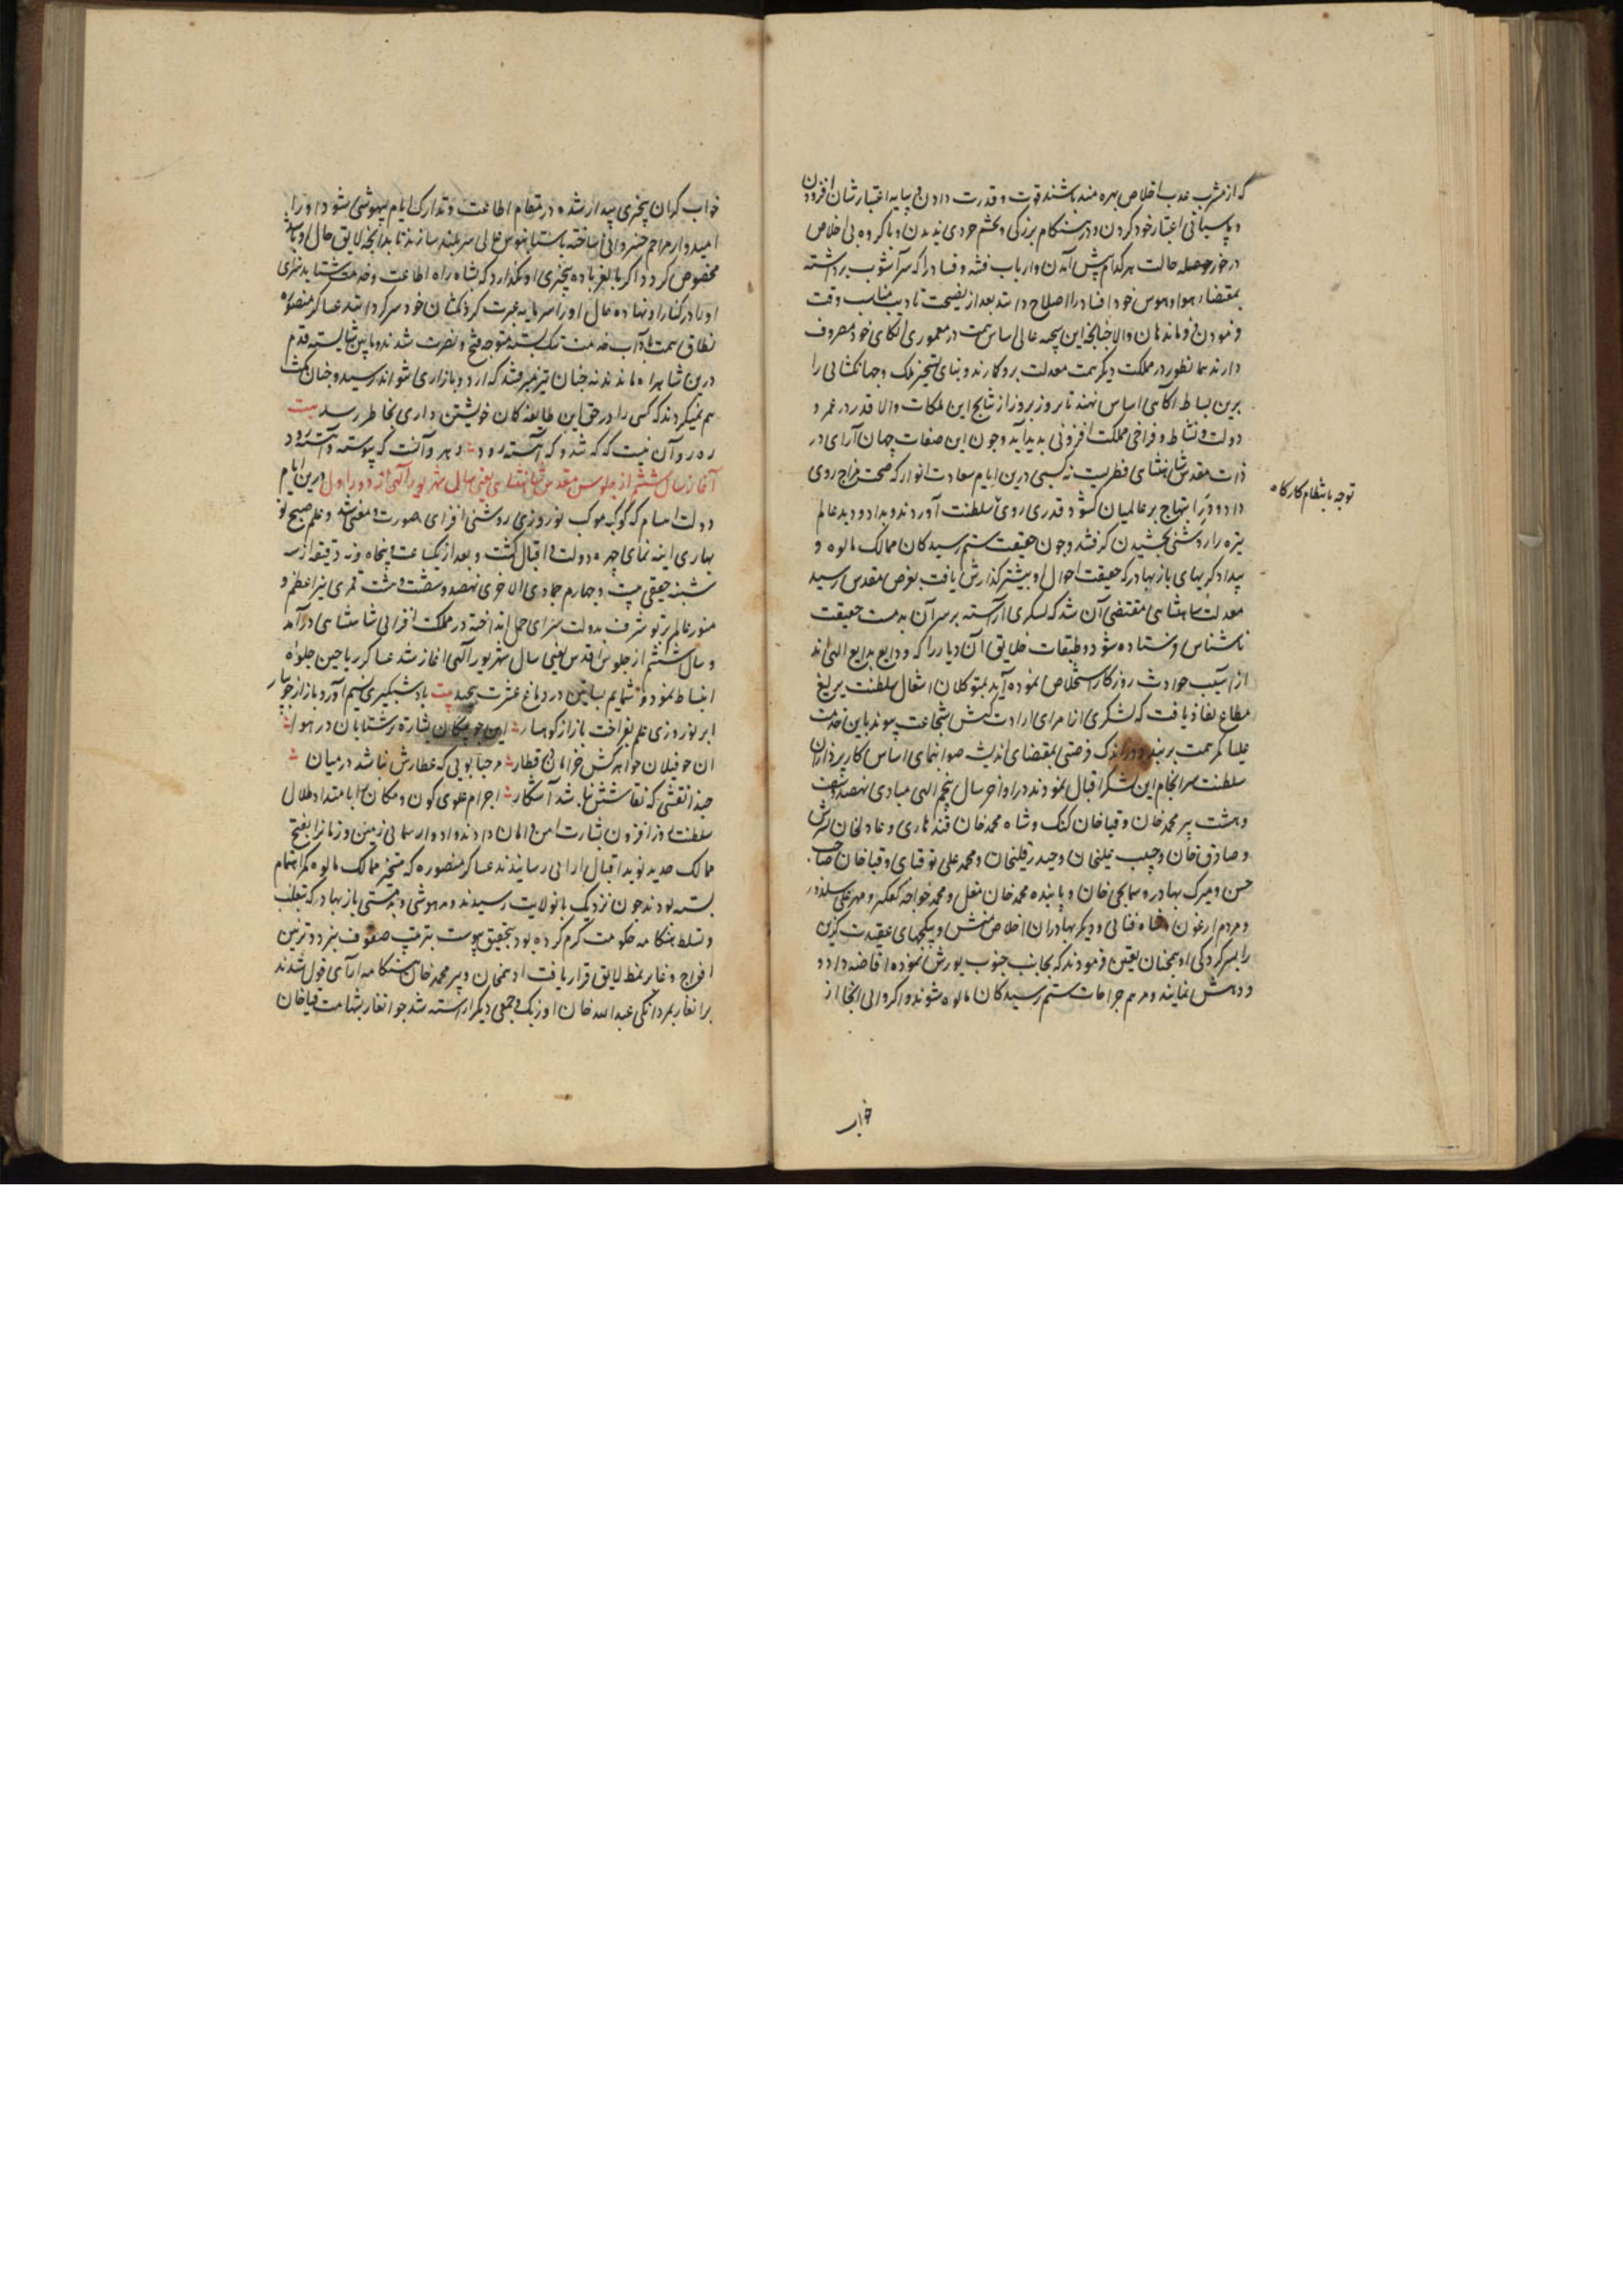 که از مشرب عذب اخلاص بهره مند باشند قوت و قدرت دادن و پایه اعتبارشان افزودن
و پاسبانی اعتبار خود کردن و در هنگام بزرگی و خشم خودی ندیدن و با گروه بی اخلاص
در خور حوصله حالت هر کدام پیش آمدن و ارباب فتنه و فساد را که سر آشوب برداشته
بمقتضاء هوا و هوس خود افساد را اصلاح دانند بعد از نصیحت تادیب مناسب وقت
فرمودن فرماندهان والا چنانچه این همه عالی اساس همت در معموری الکای خود مصروف
دارند همانطور در مملکت دیگر همت معدلت برو گمارند و بنای تسخیر ملک و جهانگشائی را
برین بساط آگاهی اساس نهند تا روز بروز از نتایج این ملکات والا قدر در عمر و
دولت و نشاط و فراخی مملکت افزونی پدید آید و چون این صفات جهان آرای در
ذات مقدس شاهنشاهی فطریست نه کسبی درین ایام سعادت انوار که صحت مزاج روی
داد و در ابتهاج بر عالمیان گشود قدری روی سلطنت آوردند و بداد و دید عالم
تیره را روشنی بخشیدن گرفتند و چون حقیقت ستم رسیدگان ممالک مالوه و
بیدادگریهای بازبهادر که حقیقت احوال او بیشتر گذارش یافت بعرض مقدس رسید
توجه بانتظام کارگاه
معدلت شاهنشاهی مقتضی آن شد که لشکری آراسته بر سر آن بدمست حقیقت
ناشناس فرستاده شود و طبقات خلایق آن دیار را که ودایع بدایع الهی اند
از آسیب حوادث روزگار استخلاص نموده آید بمتوکلان اشغال سلطنت یرلیغ
مطاع نفاذ یافت که لشکری از امرای ارادت کیش شجاعت پیوند باین خدمت
علیا کمر همت بربندد و در اندک فرصتی بمقتضای اندیشه صوابنمای اساس کارپردازان
سلطنت سرانجام این لشکر اقبال نمودند در اواخر سال پنجم الهی مبادی نهصد و شصت
و هشت پیر محمد خان و قیاخان کنک و شاه محمد خان قندهاری و عادلخان پسرش
و صادق خان و حبیب علیخان و حیدر قلیخان و محمد علی توقبای و قیاخان صاحب
حسن و میرک بهادر و سمانجی خان و پاینده محمد خان مغل و محمد خواجه کمکر و مهر علی سلدوز
و مردم ارغون و شاه فنائی و دیگر بهادران اخلاص منش و یکهای عقیدت گزین
را بسرکردگی ادهمخان تعین فرمودند که بجانب جنوب یورش نموده افاضه داد و
دهش نمایند و مرهم جراحات ستم رسیدگان مالوه شوند و اگر والی انجا از
خواب
خواب گران بیخبری بیدار شده در مقام اطاعت و تدارک ایام بیهوشی شود او را
امیدوار مراحم خسروانی ساخته باستانبوس عالی سربلند سازند تا بدانچه لایق حال او باشد
مخصوص گردد و اگر بالغز باده بیخبری او نگذارد که بشاه راه اطاعت و خدمت شتابد سزای
او را در کنار او نهاده حال او را سرمایه عبرت گردنکشان خودسر گردانند عساکر منصوره
نطاق همت بآداب خدمت تنگ بسته متوجه فتح و نصرت شدند و باین شایسته قدم
درین شاهراه ماندند نه چنان تیز میرفتند که اردو بازاری نتواند رسید و چنان مکث
هم نمیکردند که کسی را در حق این طایفه گمان خویشتن داری بخاطر رسد بیت
ره رو آن نیست که گه تند و گه آهسته رود ؛ رهرو آنست که پیوسته و آهسته رود
آغاز سال ششم از جلوس مقدس شاهنشاهی یعنی سال شهریور الهی از دور اول درین ایام
دولت ابتسام که کوکبه موکب نوروزی روشنی افزای صورت و معنی شد و علم صبح نو
بهاری آینه نمای چهره دولت و اقبال گشت و بعد از یکساعت و پنجاه و نه دقیقه از سه
شنبه حقیقی بیست و چهارم جمادی الاخری نهصد و شصت و هشت قمری نیر اعظم و
منور عالم پرتو شرف بدولت سرای حمل انداخته در مملکت افزائی شاهنشاهی درآمد
و سال ششم از جلوس اقدس یعنی سال شهریور الهی آغاز شد عساکر ریاحین جلوه
انبساط نمود و شمایم بساتین در دماغ عشرت پیچید بیت باد شبگیری نسیم آورد باز از جویبار
ابر نوروزی علم بفراخت باز از کوهسار ؛ این چو پیکان بشارت بر شتابان در هوا ؛
ان چو پیلان جواهرکش خرامان قطار ؛ مرحبا بویی که عطارش نباشد در میان ؛
حبذا نقشی که نقاشش نهان شد آشکار ؛ اجرام علوی کون و مکان را بامتداد ظلال
سلطنت روزافزون بشارت امن و امان دادند و ادوار سمائی زمین و زمانرا بفتح
ممالک جدید نوید اقبال ارائی رسانیدند عساکر منصوره که بتسخیر ممالک مالوه کمر اهتمام
بسته بودند چون نزدیک بانولایت رسیدند و مدهوشی و بدمستی بازبهادر که بتغلب
و تسلط هنگامه حکومت گرم کرده بود بتحقیق پیوست بترتیب صفوف نبرد و تزئین
افواج وغا بر نمط لایق قرار یافت ادهمخان و پیر محمد خان هنگامه آرای قول شدند
برانغار بمردانگی عبدالله خان اوزبک و جمعی دیگر آراسته شد جوانغار بشهامت قیاخان